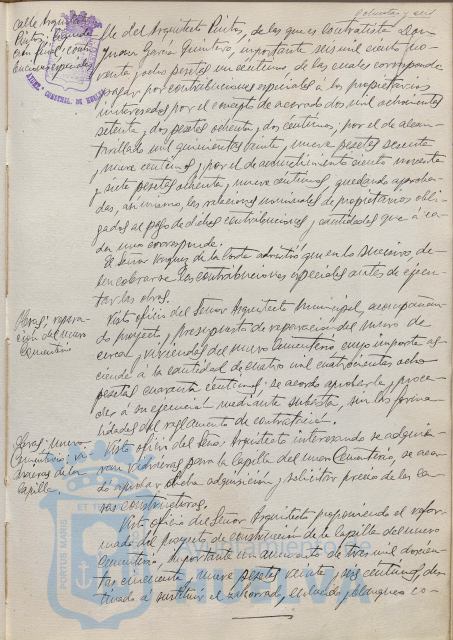 calle Arquitecto
Pintos;
contribuciones especiales
AYUNT. CONSTNAL. DE HUELVA
lle del Arquitecto Pintos, de las que es contratista Don
Juan García Quintero, importante seis mil ciento no-
venta y ocho pesetas un céntimo, de las cuales corresponde
pagar por contribuciones especiales á los propietarios
interesados por el concepto de acerado dos mil ochocientas
setenta y dos pesetas ochenta y dos céntimos; por el de alcan-
tarillado mil quinientas veinte y nueve pesetas sesenta
y nueve céntimos y por el de ciento noventa
y siete pesetas ochenta y nueve céntimos, quedando aproba-
das, asimismo, las relaciones nominales de propietarios obli-
gados al pago de dichas contribuciones y cantidades que á ca-
da uno corresponde.
El Señor Vazquez de la Corte advirtió que en lo sucesivo, de-
ben cobrarse las contribuciones especiales antes de ejecu-
tar las obras.
Obras; repara-
ción del nuevo
Cementerio
Visto oficio del Señor Arquitecto Municipal, acompañan-
do proyecto y presupuesto de reparación del muro de
cerca y viviendas del nuevo Cementerio cuyo importe as-
ciende á la cantidad de cuatro mil cuatrocientas ocho
pesetas cuarenta céntimos; se acordó aprobarlo y proce-
der á su ejecución mediante subasta, sin las forma-
lidades del reglamento de contratación.
Obras; nuevo
Cementerio; vi-
drieras de la
Capilla.
Visto oficio del Señor Arquitecto interesando se adquie-
ran vidrieras para la Capilla del nuevo Cementerio, se acor-
dó aprobar dicha adquisición y solicitar precio de las ca-
sas constructoras.
Visto oficio del Señor Arquitecto proponiendo el refor-
mado del proyecto de construcción de la Capilla del nuevo
Cementerio, importante un aumento de tres mil doscien-
tas cincuenta y nueve pesetas veinte y seis céntimos, des-
tinado á sustituir el enlucido y blanqueo co-
PORTUS MARIS
Ayuntamiento de
HUELVA